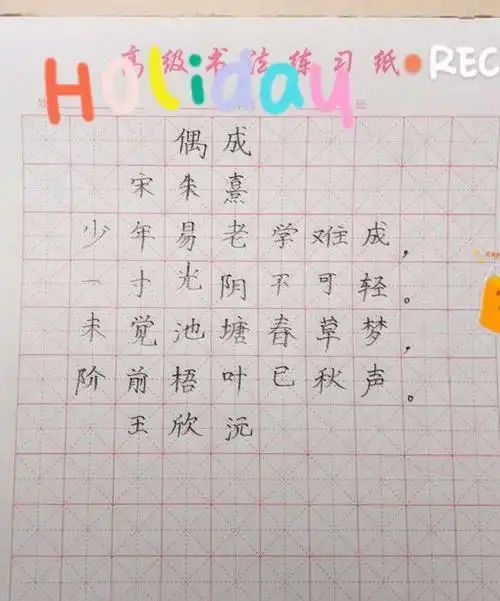 高级书法练习纸
Holiday
REC
偶成
宋朱熹
少年易老学难成，
一寸光阴不可轻。
未觉池塘春草梦，
阶前梧叶已秋声。
王欣沅